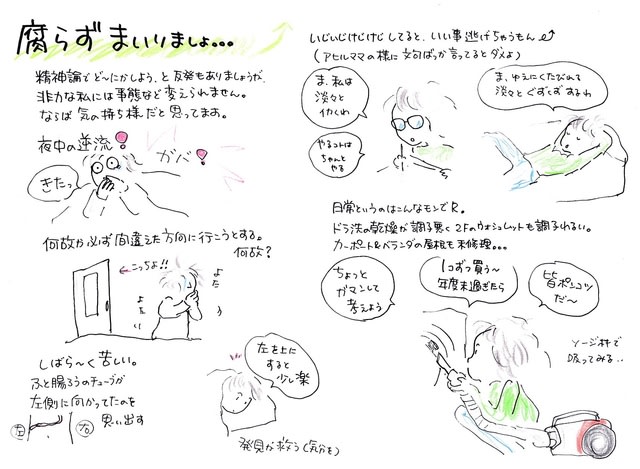 腐らずまいりましょ...
精神論でど〜にかしよう、と反発もありましょうが、
非力な私には事態など変えられません。
ならば気の持ち様だと思ってます。
夜中の逆流!
ガバ!
きたっ
何故か必ず間違えた方向に行こうとする。
何故?
←こっちよ!!
よたよた
しばら〜く苦しい。
ふと腸ろうのチューブが
左側に向かってたのを
思い出す
左
右
左を上に
すると
少し楽
発見が救う(気分を)
いじいじけじけじしてると、いい事逃げちゃうもん
(アヒルママの様に文句ばっか言ってるとダメよ)
ま、私は
淡々と
イカくわ
やるコトは
ちゃんと
やる
ま、ゆえにくたびれて
淡々とぐずぐずするわ
日常というのはこんなモンでR。
ドラ洗の乾燥が調子悪く2Fのウォシュレットも調子わるい。
カーポート&ベランダの屋根も未修理。。。
ちょっと
ガマンして
考えよう
1コずつ買う〜
年度末過ぎたら
皆ポンコツ
だ〜
ソージ機で
吸ってみる..